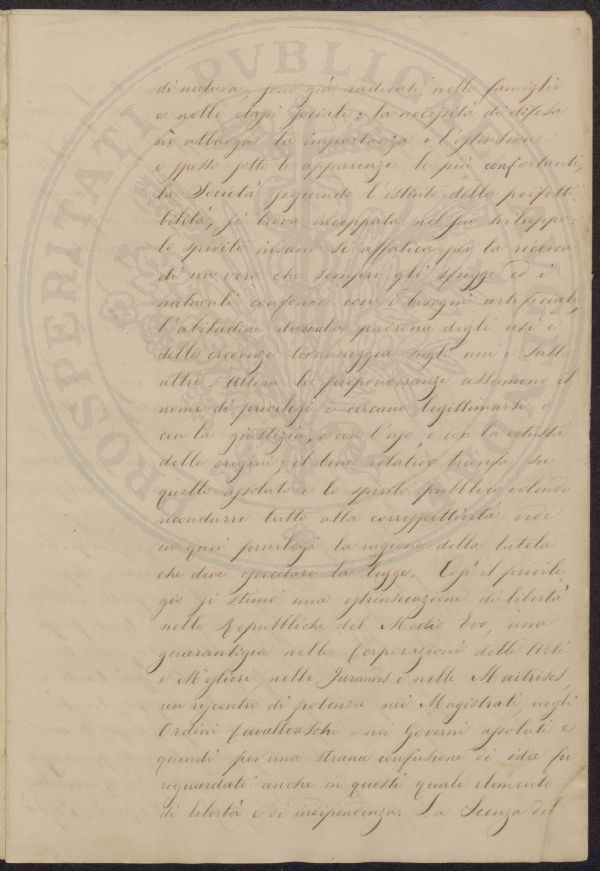 di natura, sono già radicati nelle famiglie
e nelle classi sociali: la necessità di difesa
ne allarga la importanza e l'estensione
e spesso sotto le apparenze le più confortanti,
la Società seguendo l'istinto della perfetti-
bilità, si trova inceppata nel suo sviluppo:
lo spirito umano si affatica per la ricerca
di un vero che sempre gli sfugge ed i
naturali confonde con i bisogni artificiali,
l'abitudine domina padrona degli usi e
delle credenze tiranneggia sugli uni e sulle
altre. Allora le preponderanze assumono il
nome di privilegi e cercano legittimarsi o
con la giustizia, o con l'uso, o con la vetustà
delle origini; il bene relativo trionfa su
quello assoluto e lo spirito pubblico volendo
ricondurre tutto alla correspettività vede
in quei privilegi la ragione della tutela
che deve esercitare la legge. Così il privile-
gio si stimò una estrinsecazione di libertà
nelle Repubbliche del Medio Evo, una
guarantigia nelle Corporazioni delle Arti
e Mestieri nelle Jurandes e nelle Maitrises,
un riscontro di potenza nei Magistrati, negli
Ordini Cavallereschi e nei Governi assoluti e
quindi per una strana confusione di idee fu
riguardato anche in questi quale elemento
di libertà e di indipendenza. La Scienza del
PROSPERITATI PVBLICAE